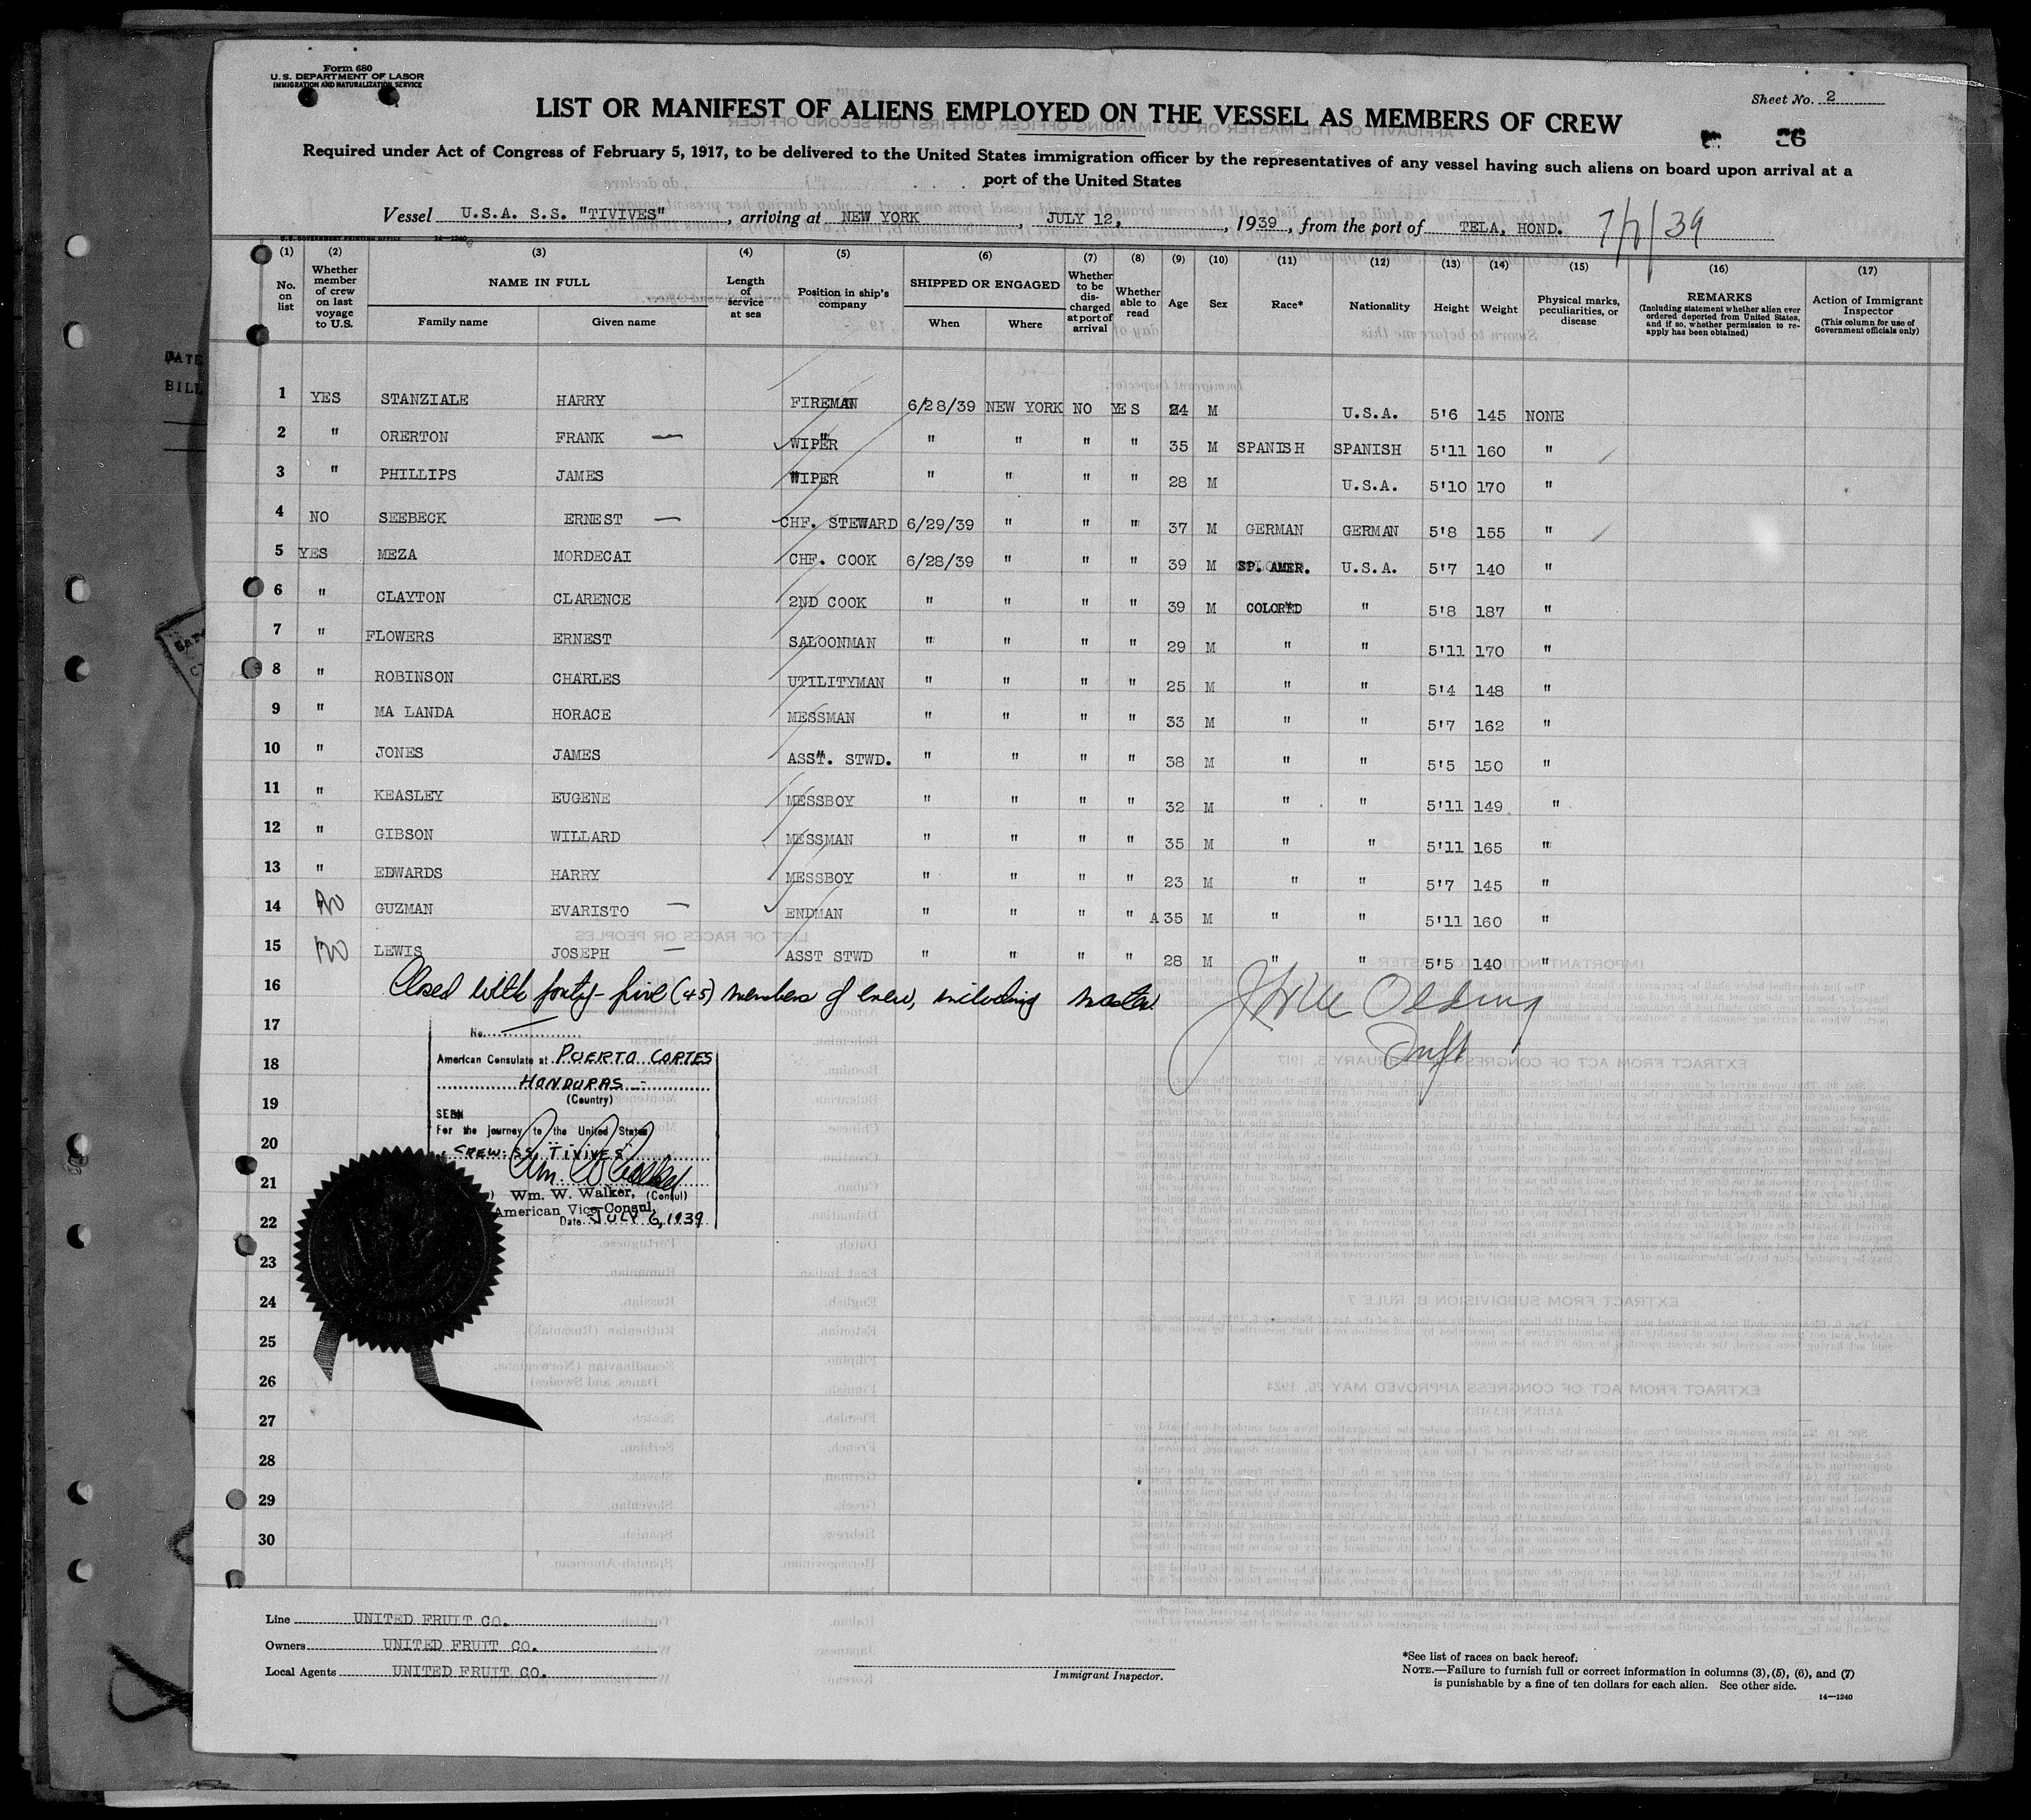 Form 680
U. S. DEPARTMENT OF LABOR
IMMIGRATION AND NATURALIZATION SERVICE
Sheet No. 2
LIST OR MANIFEST OF ALIENS EMPLOYED ON THE VESSEL AS MEMBERS OF CREW
26
Required under Act of Congress of February 5, 1917, to be delivered to the United States immigration officer by the representatives of any vessel having such aliens on board upon arrival at a
port of the United States
Vessel U.S.A. S.S. "TIVIVES", arriving at NEW YORK, JULY 12, 1939, from the port of TELA, HOND.
U. S. GOVERNMENT PRINTING OFFICE 14—1240
(1) (2) (3) (4) (5) (6) (7) (8) (9) (10) (11) (12) (13) (14) (15) (16) (17)
No. on list
Whether member of crew on last voyage to U.S.
NAME IN FULL
Family name
Given name
Length of service at sea
Position in ship's company
SHIPPED OR ENGAGED
When
Where
Whether to be discharged at port of arrival
Whether able to read
Age
Sex
Race*
Nationality
Height
Weight
Physical marks, peculiarities, or disease
REMARKS
(Including statement whether alien ever ordered deported from United States, and if so, whether permission to reapply has been obtained)
Action of Immigrant Inspector
(This column for use of Government officials only)
1 YES STANZIALE HARRY FIREMAN 6/28/39 NEW YORK NO YES 24 M U.S.A. 5'6 145 NONE
2 " ORERTON FRANK — WIPER " " " " 35 M SPANISH SPANISH 5'11 160 "
3 " PHILLIPS JAMES WIPER " " " " 28 M U.S.A. 5'10 170 "
4 NO SEEBECK ERNEST — CHF. STEWARD 6/29/39 " " " 37 M GERMAN GERMAN 5'8 155 "
5 YES MEZA MORDECAI CHF. COOK 6/28/39 " " " 39 M SP. AMER. U.S.A. 5'7 140 "
6 " CLAYTON CLARENCE 2ND COOK " " " " 39 M COLORED " 5'8 187 "
7 " FLOWERS ERNEST SALOONMAN " " " " 29 M " " 5'11 170 "
8 " ROBINSON CHARLES UTILITYMAN " " " " 25 M " " 5'4 148 "
9 " MA LANDA HORACE MESSMAN " " " " 33 M " " 5'7 162 "
10 " JONES JAMES ASST. STWD. " " " " 38 M " " 5'5 150 "
11 " KEASLEY EUGENE MESSBOY " " " " 32 M " " 5'11 149 "
12 " GIBSON WILLARD MESSMAN " " " " 35 M " " 5'11 165 "
13 " EDWARDS HARRY MESSBOY " " " " 23 M " " 5'7 145 "
14 NO GUZMAN EVARISTO — ENDMAN " " " " A 35 M " " 5'11 160 "
15 NO LEWIS JOSEPH — ASST STWD " " " " 28 M " " 5'5 140 "
16 Closed with forty-five (45) members of crew, including master
17
18
19
20
21
22
23
24
25
26
27
28
29
30
No.
American Consulate at PUERTO CORTES
HONDURAS
(Country)
SEEN
For the journey to the United States
CREW SS TIVIVES
Wm. W. Walker, (Consul)
American Vice Consul,
Date JULY 6, 1939
Line UNITED FRUIT CO.
Owners UNITED FRUIT CO.
Local Agents UNITED FRUIT CO.
Immigrant Inspector.
*See list of races on back hereof.
NOTE.—Failure to furnish full or correct information in columns (3), (5), (6), and (7)
is punishable by a fine of ten dollars for each alien. See other side.
14—1240